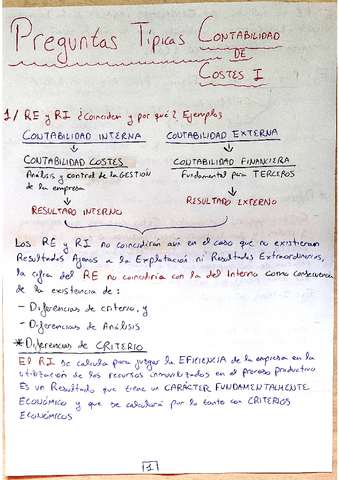 Preguntas Típicas CONTABILIDAD
DE
COSTES I
1/ RE y RI ¿Coinciden y por qué? Ejemplos
CONTABILIDAD INTERNA CONTABILIDAD EXTERNA
CONTABILIDAD COSTES CONTABILIDAD FINANCIERA
Análisis y control de la GESTIÓN Fundamental para TERCEROS
de la empresa
RESULTADO INTERNO RESULTADO EXTERNO
Los RE y RI no coincidirán aún en el caso que no existieran
Resultados Ajenos a la Explotación ni Resultados Extraordinarios,
la cifra del RE no coincidiría con la del Interno como consecuencia
de la existencia de:
- Diferencias de criterio, y
- Diferencias de Análisis
* Diferencias de CRITERIO
El RI se calcula para juzgar la EFICIENCIA de la empresa en la
utilización de los recursos inmovilizados en el proceso productivo
Es un Resultado que tiene un CARÁCTER FUNDAMENTALMENTE
ECONÓMICO y que se calculará por lo tanto con CRITERIOS
ECONÓMICOS
1